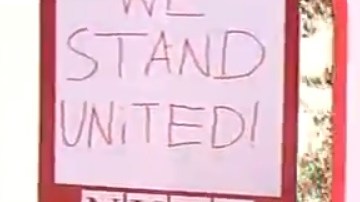 WE
STAND
UNiTED!